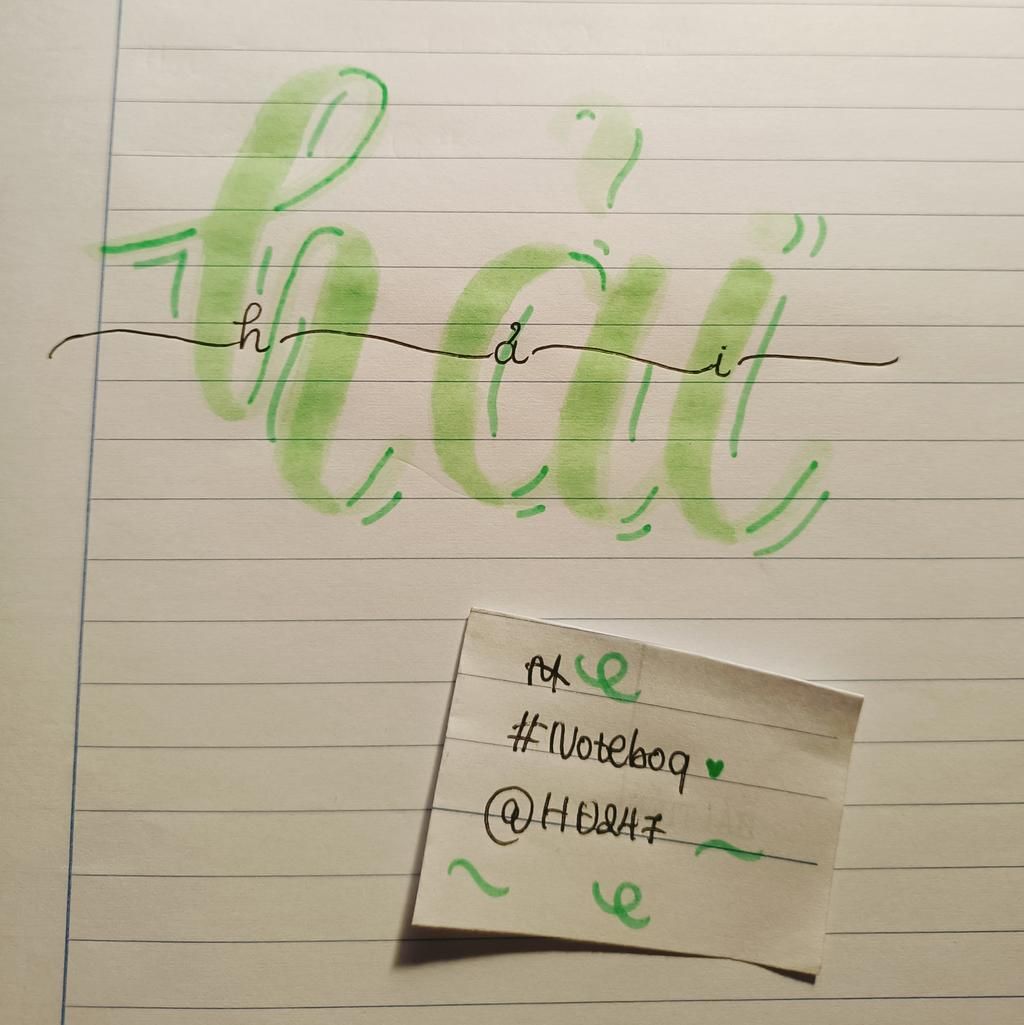 hải
h ả i
#Noteboq
@HD247